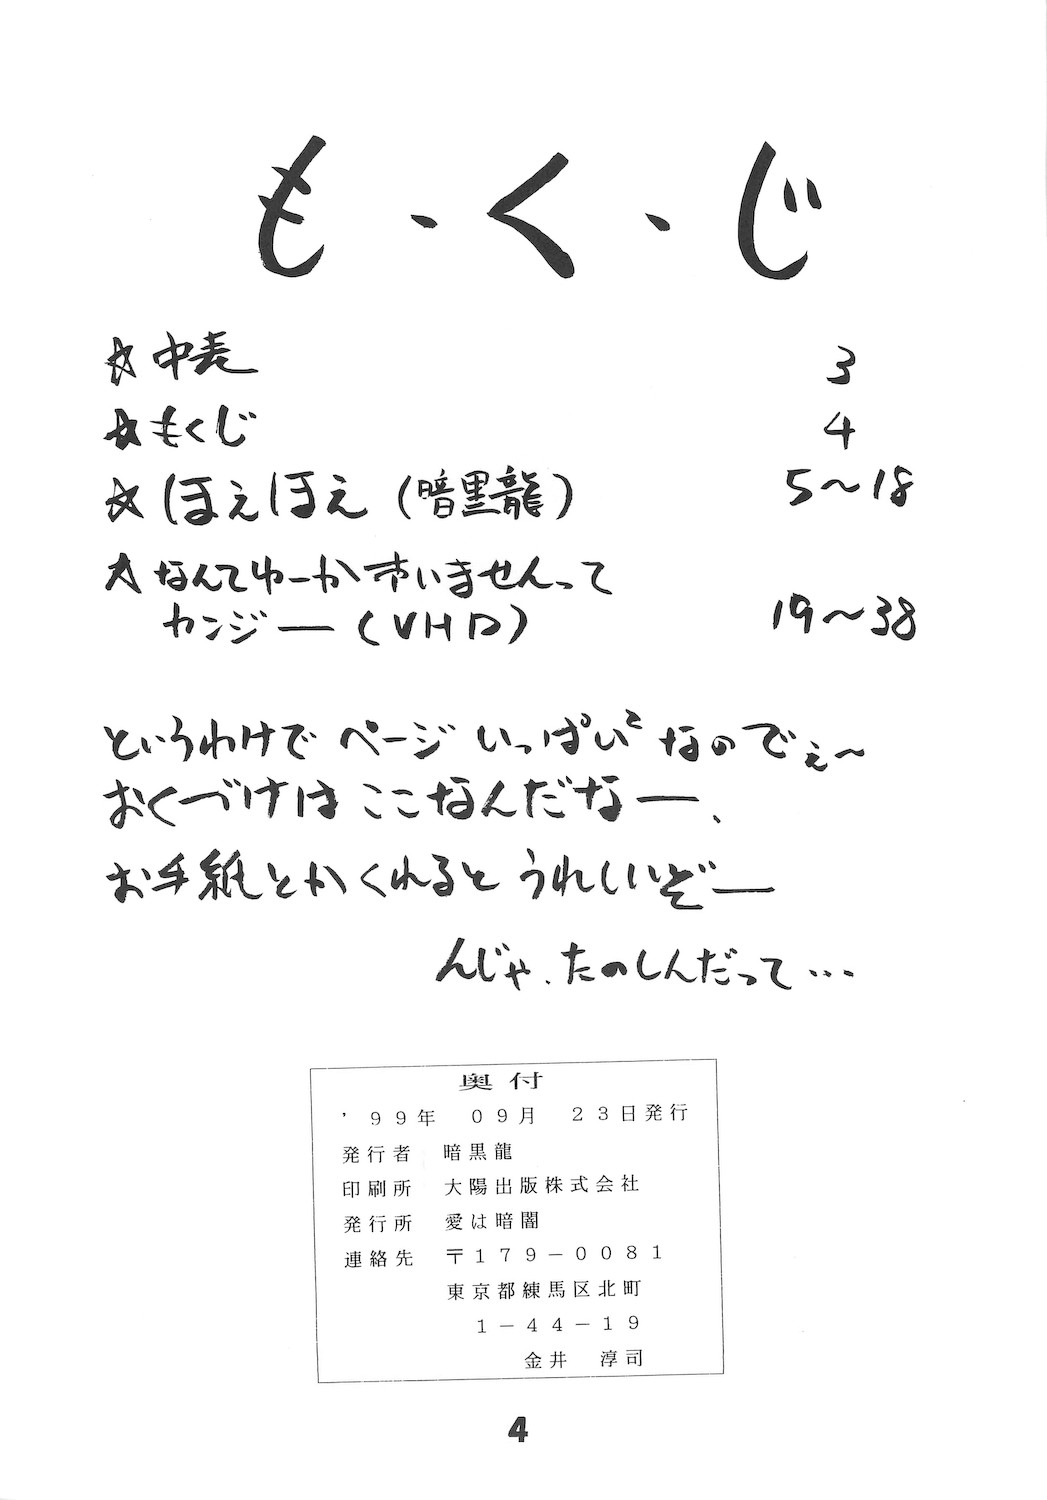 も、く、じ
☆中表 3
☆もくじ 4
☆ほえほえ(暗黒龍) 5〜18
☆なんてゆーかすいませんって
カンジー(VHD) 19〜38
というわけで ページ いっぱい² なのでぇ〜
おくづけは ここなんだなー、
お手紙とかくれると うれしいぞー
んじゃ、たのしんだって…
奥付
’99年 09月 23日発行
発行者 暗黒龍
印刷所 大陽出版株式会社
発行所 愛は暗闇
連絡先 〒179-0081
東京都練馬区北町
1-44-19
金井 淳司
4